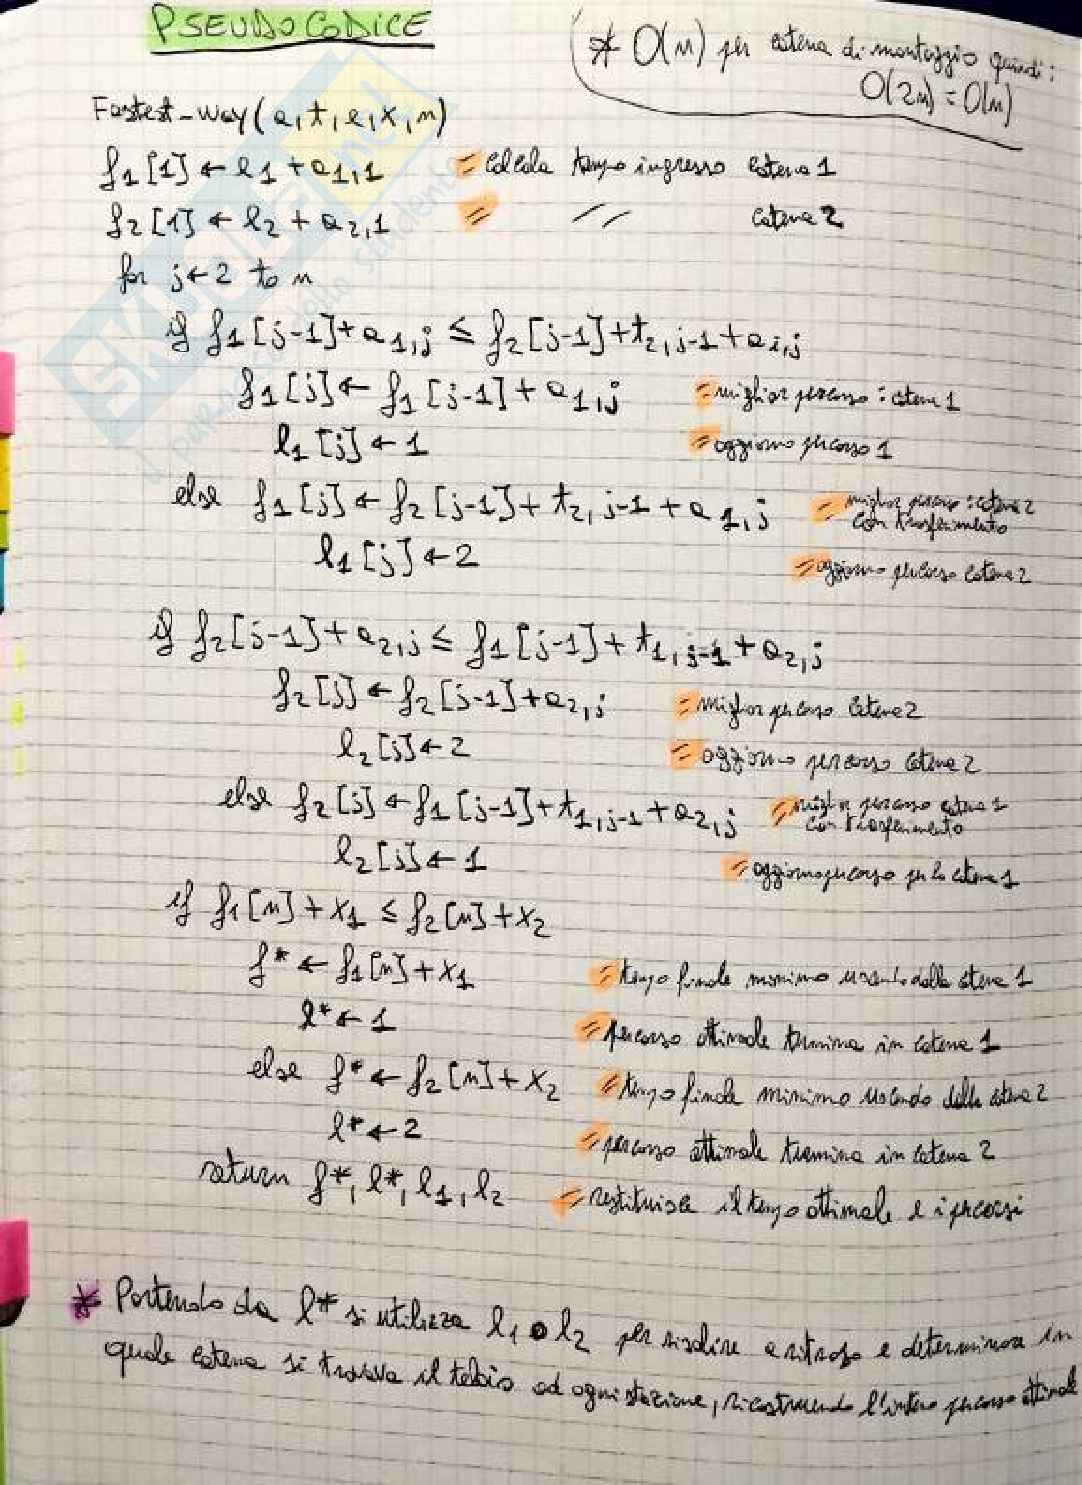 PSEUDOCODICE
* O(n) per catena di montaggio quindi:
O(2n) = O(n)
Fastest-Way(a, t, e, x, n)
f1[1] ← e1 + a1,1 = calcola tempo ingresso catena 1
f2[1] ← e2 + a2,1 = // catena 2
for j ← 2 to n
if f1[j-1] + a1,j ≤ f2[j-1] + t2,j-1 + a1,j
f1[j] ← f1[j-1] + a1,j = miglior percorso: catena 1
l1[j] ← 1 = aggiorno percorso 1
else f1[j] ← f2[j-1] + t2,j-1 + a1,j = miglior percorso: catena 2
con trasferimento
l1[j] ← 2 = aggiorno percorso catena 2
if f2[j-1] + a2,j ≤ f1[j-1] + t1,j-1 + a2,j
f2[j] ← f2[j-1] + a2,j = miglior percorso catena 2
l2[j] ← 2 = aggiorno percorso catena 2
else f2[j] ← f1[j-1] + t1,j-1 + a2,j = miglior percorso catena 1
con trasferimento
l2[j] ← 1 = aggiorno percorso per la catena 1
if f1[n] + x1 ≤ f2[n] + x2
f* ← f1[n] + x1 = tempo finale minimo uscendo dalla catena 1
l* ← 1 = percorso ottimale termina in catena 1
else f* ← f2[n] + x2 = tempo finale minimo uscendo dalla catena 2
l* ← 2 = percorso ottimale termina in catena 2
return f*, l*, l1, l2 = restituisce il tempo ottimale e i percorsi
* Partendo da l* si utilizza l1 o l2 per risalire a ritroso e determinare in
quale catena si trovava il telaio ad ogni stazione, ricostruendo l'intero percorso ottimale